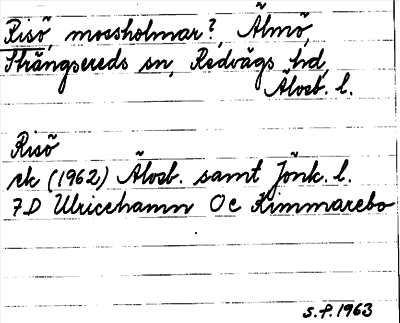 Risö, mossholmar?, Älmö,
Strängsereds sn, Redvägs hd,
Älvsb. l.
Risö
ek (1962) Älvsb. samt Jönk. l.
7D Ulricehamn 0c Kimmarebo
S.F. 1963